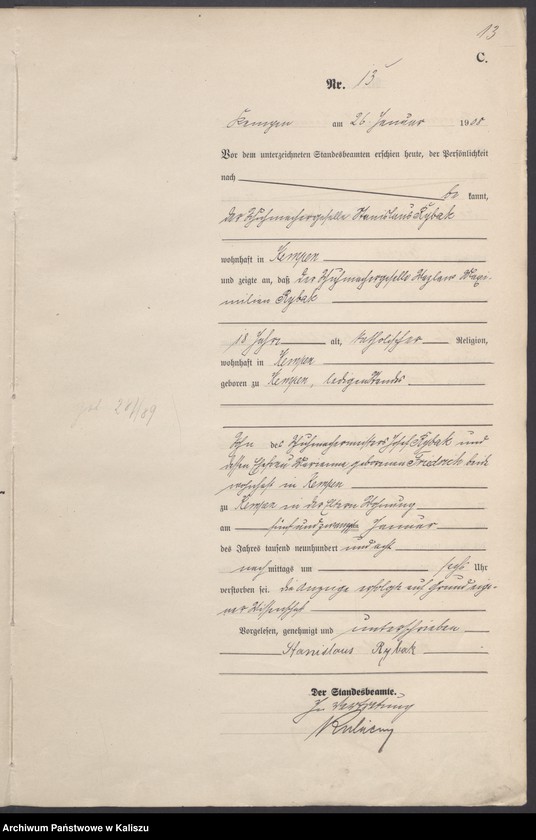 13
C.
Nr. 13
Kempen am 26 Januar 1908
Vor dem unterzeichneten Standesbeamten erschien heute, der Persönlichkeit
nach
be kannt,
der Schuhmachergeselle Stanislaus Rybak
wohnhaft in Kempen
und zeigte an, daß der Schuhmachergeselle Waxi-
milian Rybak
18 Jahre alt, katholischer Religion,
wohnhaft in Kempen
geboren zu Kempen, ledigen Standes
Sohn des Schuhmachermeisters Josef Rybak und
dessen Ehefrau Marianna geborenen Friedrich beide
wohnhaft in Kempen
zu Kempen in der Eltern Wohnung
am fünfundzwanzigsten Januar
des Jahres tausend neunhundert und acht
nach mittags um sechs Uhr
verstorben sei. Die Anzeige erfolgte auf Grund eige-
ner Wissenschaft
Vorgelesen, genehmigt und unterschrieben
Stanislaus Rybak
Der Standesbeamte.
In Vertretung
Archiwum Państwowe w Kaliszu